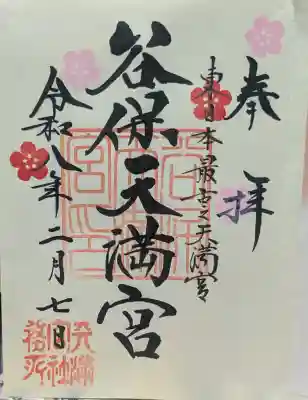 奉拝
東日本最古之天満宮
谷保天満宮
令和八年二月七日
天満宮社務所